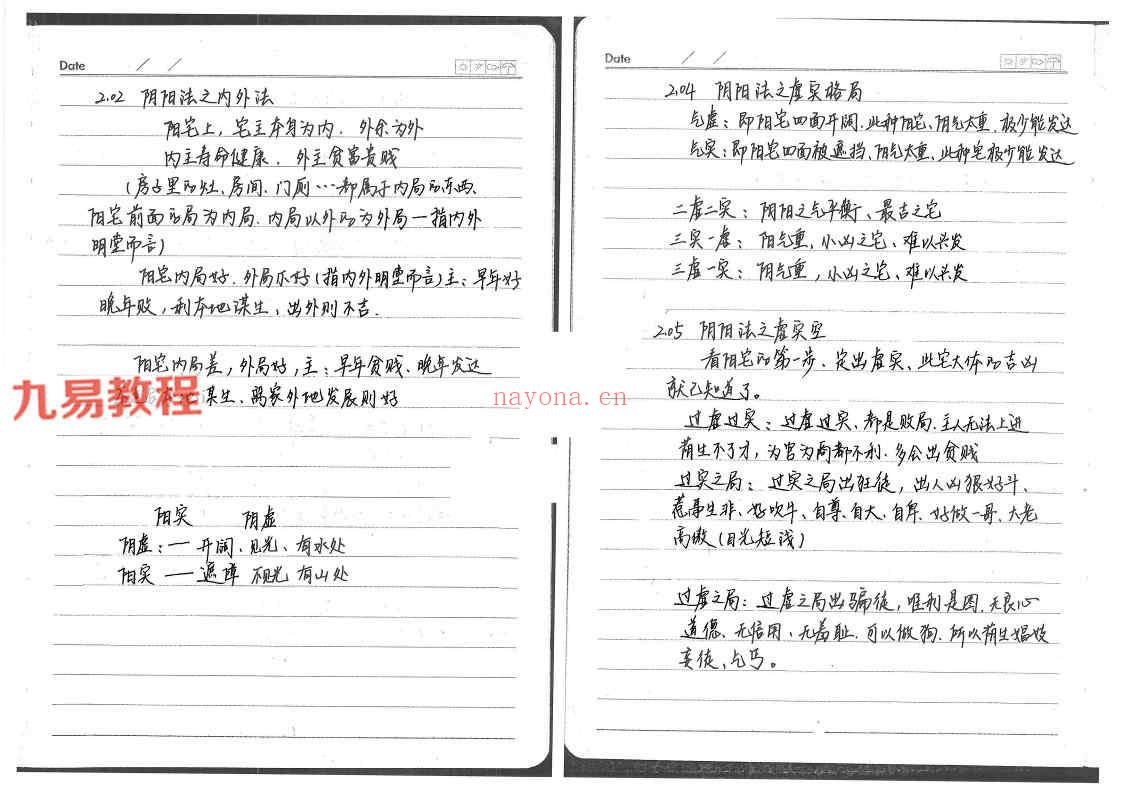 Date / /
2.02 阴阳法之内外法
阳宅上，宅主本身为内、外余为外
内主寿命健康、外主贫富贵贱
(房子里的灶、房间、门厕…都属于内局的东西、
阳宅前面的局为内局、内局以外的为外局—指内外
明堂而言)
阳宅内局好、外局不好(指内外明堂而言)主：早年好
晚年败，利本地谋生、出外则不吉.
阳宅内局差，外局好，主：早年贫贱、晚年发达
谋生、离家外地发展则好
九易教程
阳实 阴虚
阴虚：— 开阔、见光、有水处
阳实 — 遮障 不见光 有山处
Date / /
2.04 阴阳法之虚实格局
气虚：即阳宅四面开阔、此种阳宅、阴气太重、极少能发达
气实：即阳宅四面被遮挡、阳气太重、此种宅极少能发达
二虚二实：阴阳之气平衡、最吉之宅
三实一虚：阳气重，小凶之宅、难以兴发
三虚一实：阴气重，小凶之宅、难以兴发
2.05 阴阳法之虚实空
看阳宅的第一步、定出虚实、此宅大体的吉凶
就已知道了。
nayona.cn
过虚过实：过虚过实、都是败局、主人无法上进
荫生不了才，为官为商都不利、多会出贫贱
过实之局：过实之局出狂徒，出人凶狠好斗、
惹事生非、好吹牛、自尊、自大、自卑、好做一哥、大老
高傲(目光短浅)
过虚之局：过虚之局出骗徒，唯利是图、无良心
道德、无信用、无羞耻、可以做狗、所以荫生娼妓
妄徒、乞丐。